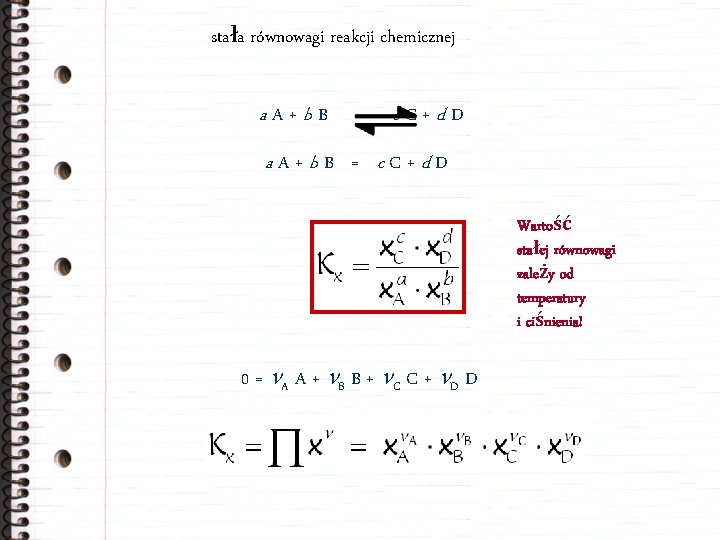 stała równowagi reakcji chemicznej
a A + b B ⇌ c C + d D
a A + b B = c C + d D
K_x = (x_C^c · x_D^d) / (x_A^a · x_B^b)
Wartość
stałej równowagi
zależy od
temperatury
i ciśnienia!
0 = ν_A A + ν_B B + ν_C C + ν_D D
K_x = ∏ x^ν = x_A^{ν_A} · x_B^{ν_B} · x_C^{ν_C} · x_D^{ν_D}